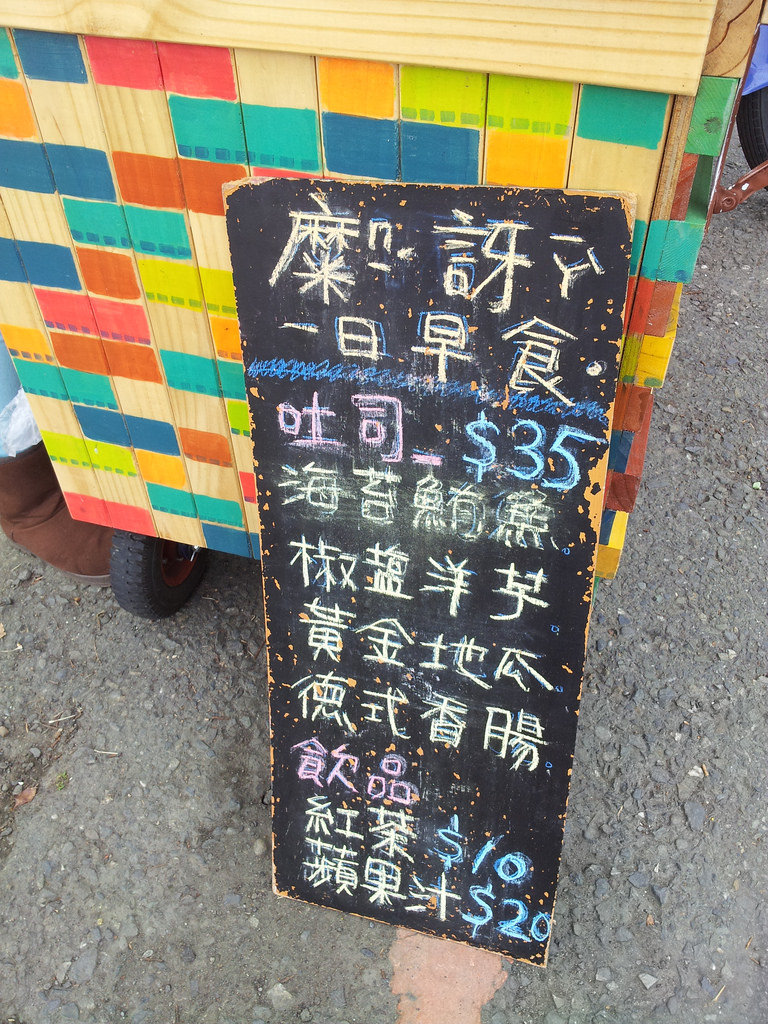 糜ㄇㄟˊ訝ㄚ
一日早食
吐司_ $35
海苔鮪魚
椒鹽洋芋
黃金地瓜
德式香腸
飲品
紅茶 $10
蘋果汁 $20